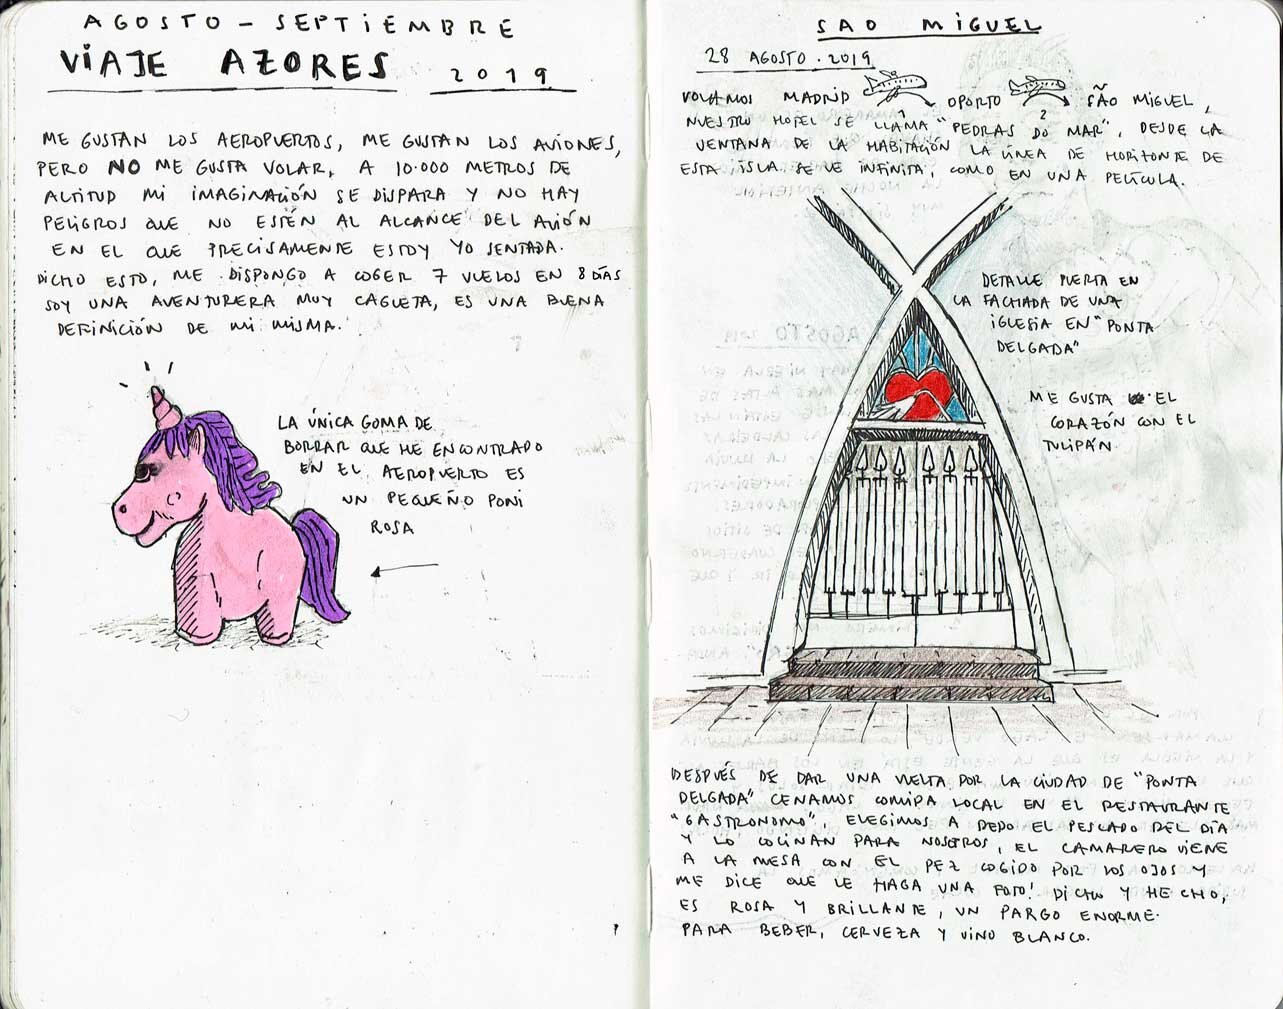 AGOSTO - SEPTIEMBRE
VIAJE AZORES 2019
ME GUSTAN LOS AEROPUERTOS, ME GUSTAN LOS AVIONES,
PERO NO ME GUSTA VOLAR, A 10.000 METROS DE
ALTITUD MI IMAGINACIÓN SE DISPARA Y NO HAY
PELIGROS QUE NO ESTÉN AL ALCANCE DEL AVIÓN
EN EL QUE PRECISAMENTE ESTOY YO SENTADA.
DICHO ESTO, ME DISPONGO A COGER 7 VUELOS EN 8 DÍAS
SOY UNA AVENTURERA MUY CAGUETA, ES UNA BUENA
DEFINICIÓN DE MI MISMA.
LA ÚNICA GOMA DE
BORRAR QUE HE ENCONTRADO
EN EL AEROPUERTO ES
UN PEQUEÑO PONI
ROSA
SAO MIGUEL
28 AGOSTO.2019
VOLAMOS MADRID 1 OPORTO 2 SÃO MIGUEL,
NUESTRO HOTEL SE LLAMA "PEDRAS DO MAR", DESDE LA
VENTANA DE LA HABITACIÓN LA LÍNEA DE HORIZONTE DE
ESTA ISLA SE VE INFINITA, COMO EN UNA PELÍCULA.
DETALLE PUERTA EN
LA FACHADA DE UNA
IGLESIA EN "PONTA
DELGADA"
ME GUSTA EL
CORAZÓN CON EL
TULIPÁN.
DESPUÉS DE DAR UNA VUELTA POR LA CIUDAD DE "PONTA
DELGADA" CENAMOS COMIDA LOCAL EN EL RESTAURANTE
"GASTRONOMO", ELEGIMOS A DEDO EL PESCADO DEL DÍA
Y LO COCINAN PARA NOSOTROS, EL CAMARERO VIENE
A LA MESA CON EL PEZ COGIDO POR LOS OJOS Y
ME DICE QUE LE HAGA UNA FOTO! DICHO Y HECHO,
ES ROSA Y BRILLANTE, UN PARGO ENORME.
PARA BEBER, CERVEZA Y VINO BLANCO.